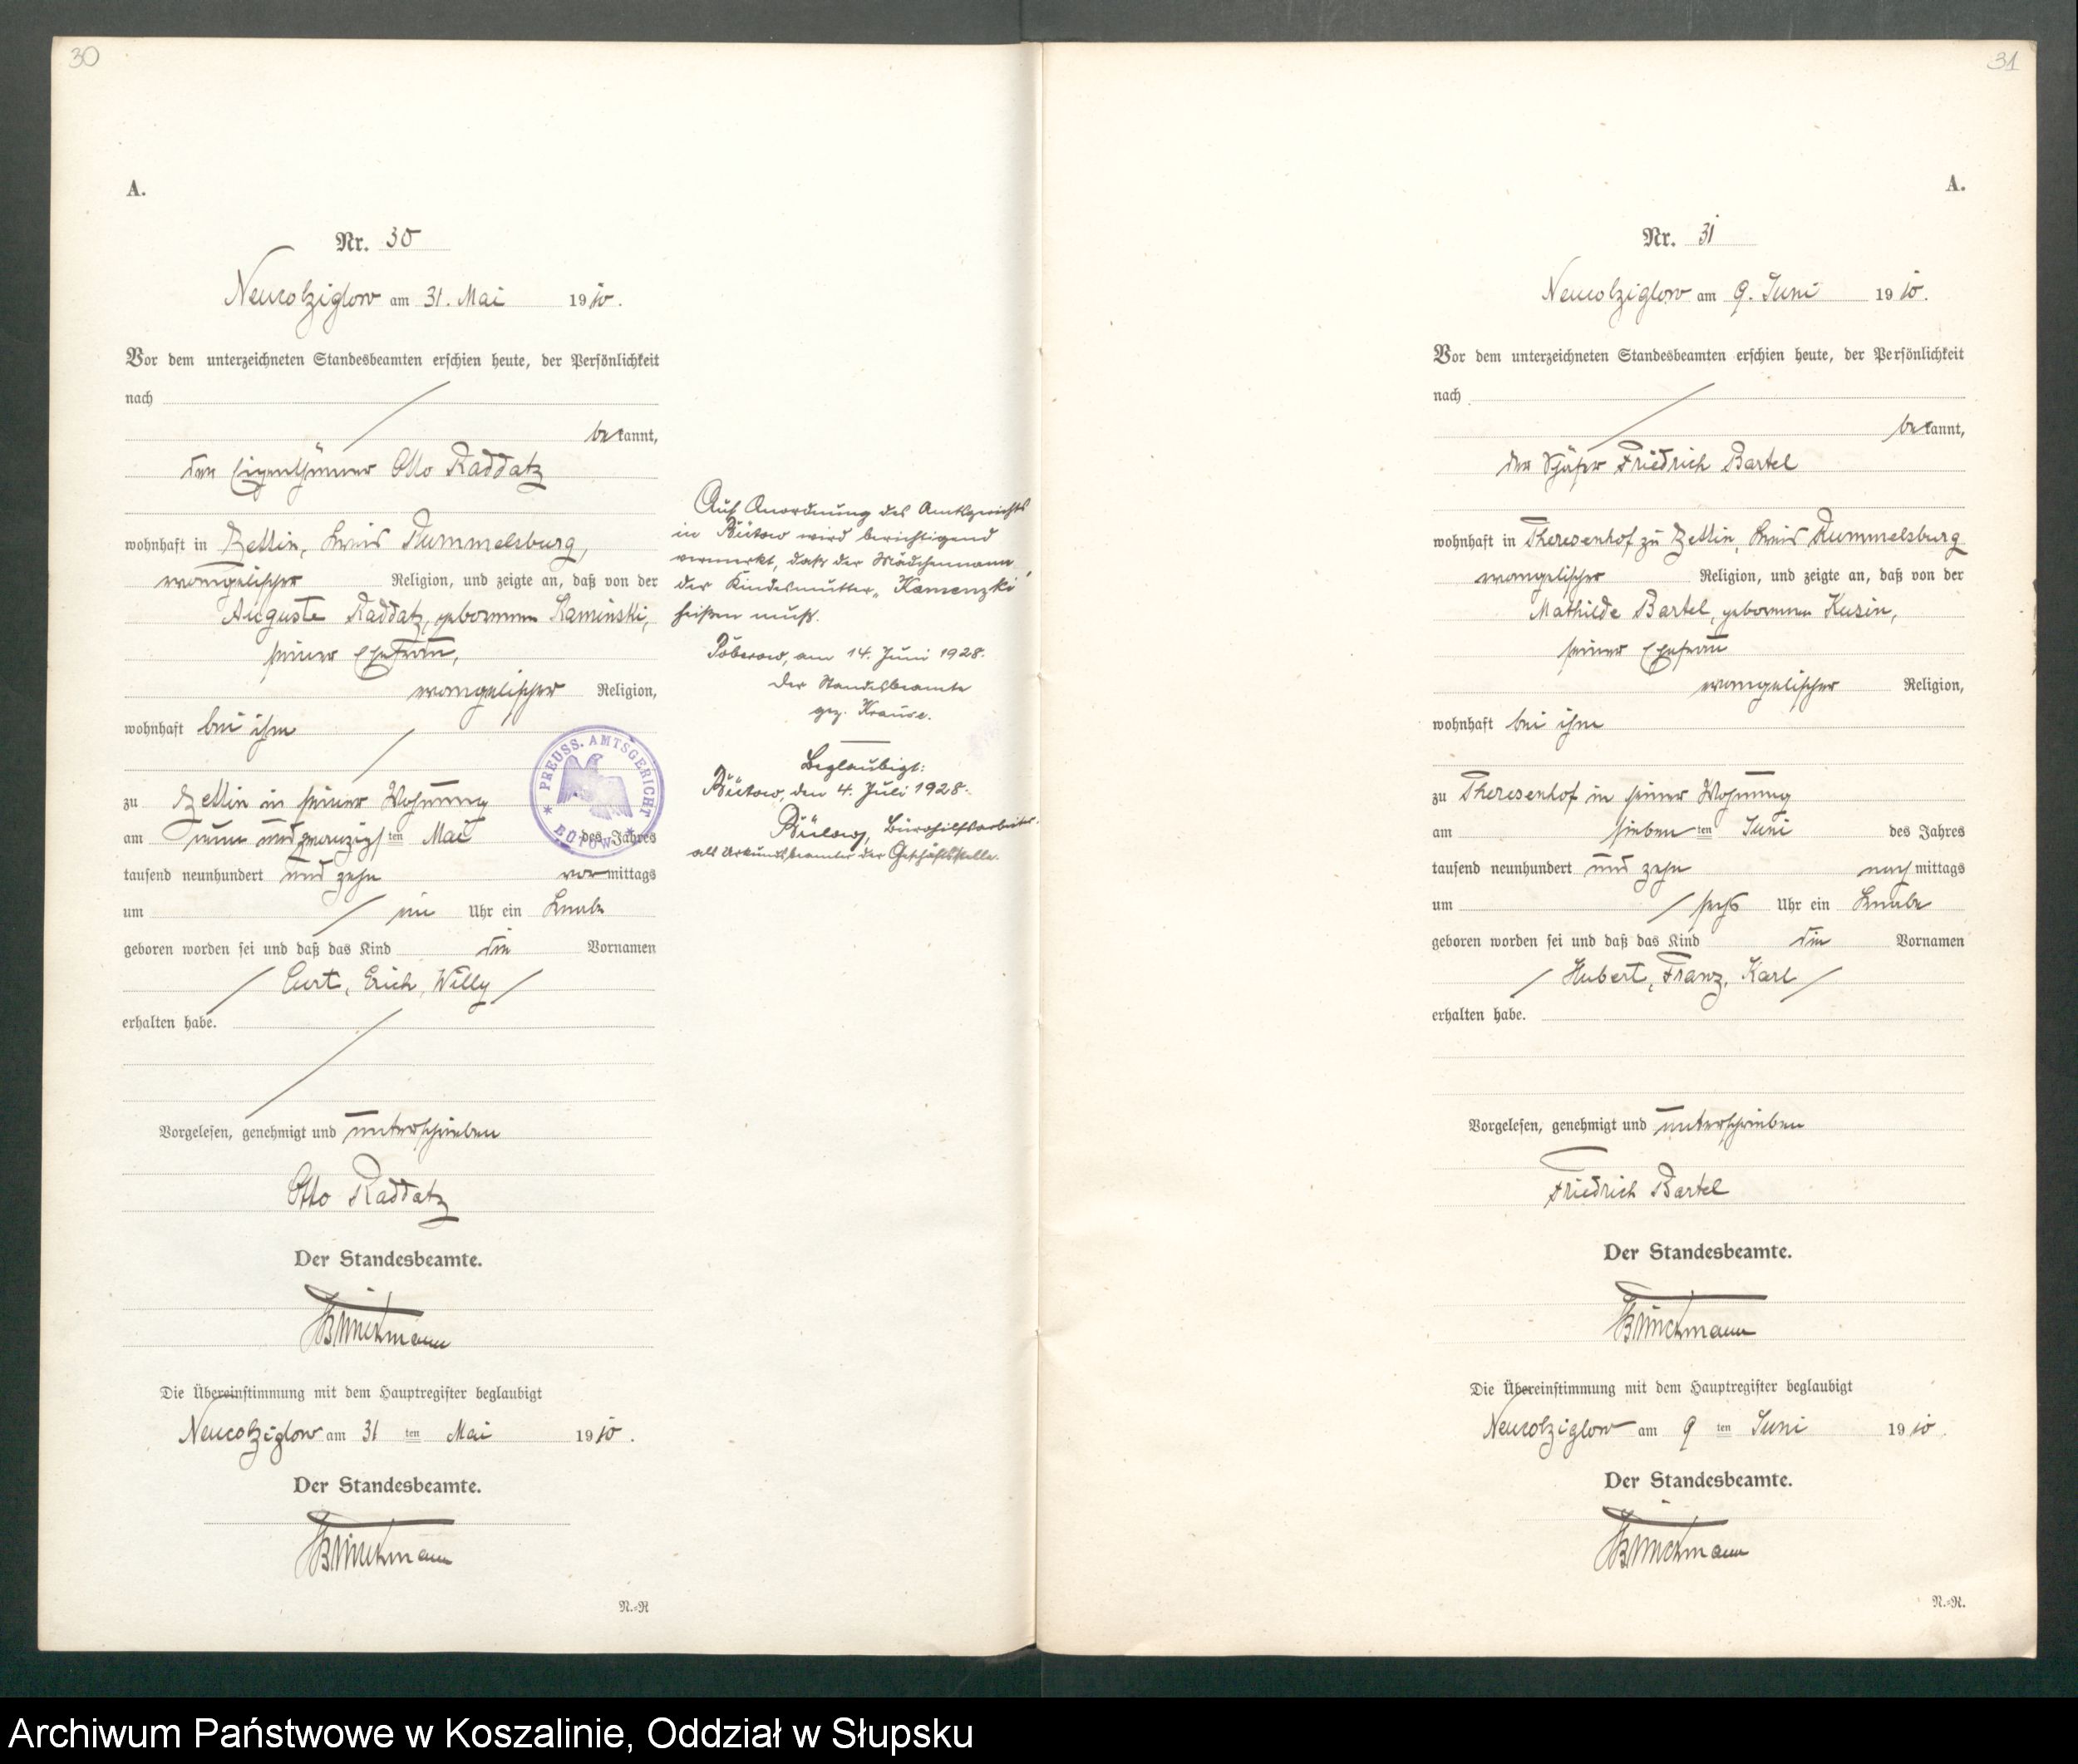 30
A.
Nr. 30
Neucolziglow am 31. Mai 1910.
Vor dem unterzeichneten Standesbeamten erschien heute, der Persönlichkeit
nach
bekannt,
der Eigenthümer Otto Raddatz
wohnhaft in Zettin, Kreis Rummelsburg,
evangelischer Religion, und zeigte an, daß von der
Auguste Raddatz, geborenen Kaminski,
seiner Ehefrau,
evangelischer Religion,
wohnhaft bei ihm
zu Zettin in seiner Wohnung
am neun und zwanzigsten Mai des Jahres
tausend neunhundert und zehn vormittags
um ein Uhr ein Knabe
geboren worden sei und daß das Kind die Vornamen
Curt, Erich, Willy
erhalten habe.
Vorgelesen, genehmigt und unterschrieben
Otto Raddatz
Der Standesbeamte.
Die Übereinstimmung mit dem Hauptregister beglaubigt
Neucolziglow am 31 ten Mai 1910.
Der Standesbeamte.
N.=R
Auf Anordnung des Amtsgerichts
in Bütow wird berichtigend
vermerkt, daß der Mädchenname
der Kindesmutter „Kamenzki"
heißen muß.
Poberow, am 14. Juni 1928.
Der Standesbeamte
gez. Krause.
Beglaubigt:
Bütow, den 4. Juli 1928.
Bülow, Bürohilfsarbeiter
als Urkundsbeamter der Geschäftsstelle.
PREUSS. AMTSGERICHT
* BÜTOW *
31
A.
Nr. 31
Neucolziglow am 9. Juni 1910.
Vor dem unterzeichneten Standesbeamten erschien heute, der Persönlichkeit
nach
bekannt,
der Schäfer Friedrich Bartel
wohnhaft in Theresenhof zu Zettin, Kreis Rummelsburg
evangelischer Religion, und zeigte an, daß von der
Mathilde Bartel, geborenen Kusin,
seiner Ehefrau
evangelischer Religion,
wohnhaft bei ihm
zu Theresenhof in seiner Wohnung
am sieben ten Juni des Jahres
tausend neunhundert und zehn nachmittags
um sechs Uhr ein Knabe
geboren worden sei und daß das Kind die Vornamen
Hubert, Franz, Karl
erhalten habe.
Vorgelesen, genehmigt und unterschrieben
Friedrich Bartel
Der Standesbeamte.
Die Übereinstimmung mit dem Hauptregister beglaubigt
Neucolziglow am 9 ten Juni 1910.
Der Standesbeamte.
N.=R.
Archiwum Państwowe w Koszalinie, Oddział w Słupsku